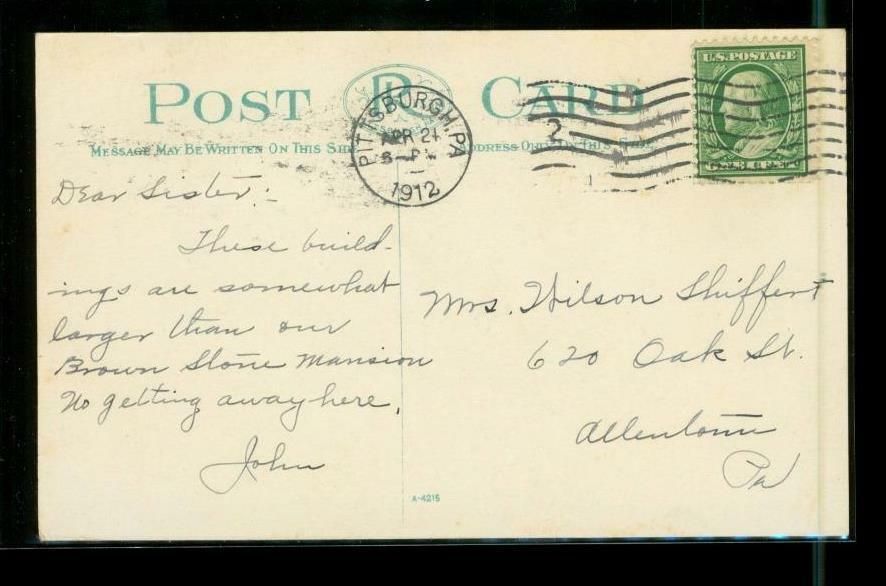 POST CARD
MESSAGE MAY BE WRITTEN ON THIS SIDE
ADDRESS ONLY ON THIS SIDE
PITTSBURGH, PA
APR 24
1912
2
U.S. POSTAGE
Dear Sister:-
These build-
ings are somewhat
larger than our
Brown Stone Mansion
No getting away here.
John
Mrs. Wilson Shiffert
620 Oak St.
Allentown
Pa
A-4215